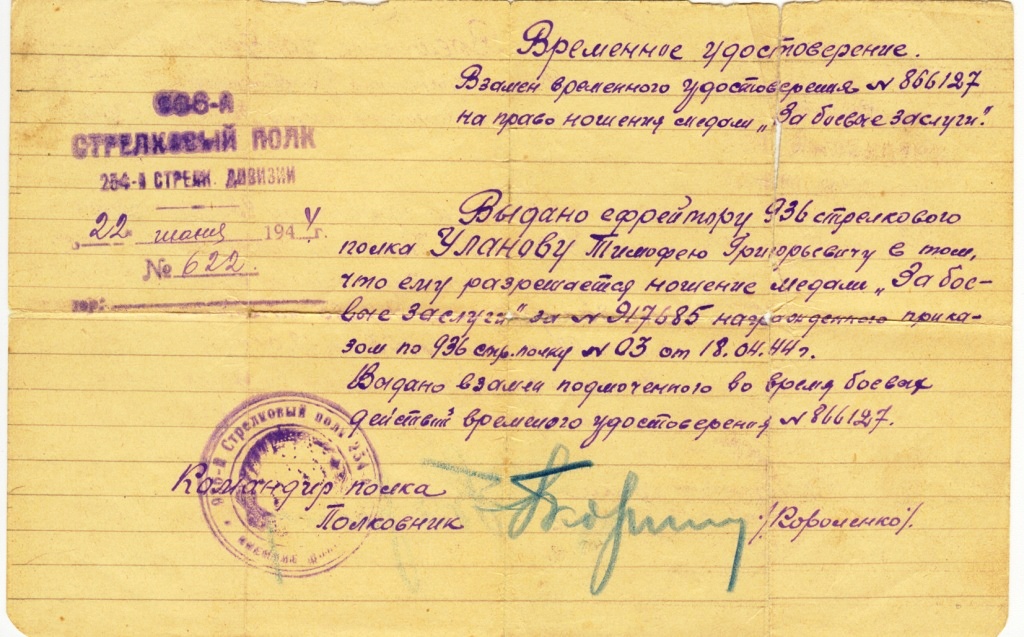 Временное удостоверение.
Взамен временного удостоверения N 866127
на право ношения медали „За боевые заслуги".
936-й
СТРЕЛКОВЫЙ ПОЛК
254-й СТРЕЛК. ДИВИЗИИ
„22" июня 1944г.
№ 622.
Выдано ефрейтору 936 стрелкового
полка Уланову Тимофею Григорьевичу в том,
что ему разрешается ношение медали „За бое-
вые заслуги" за N 917685 награжденного прика-
зом по 936 стр. полку N 03 от 18.04.44г.
Выдано взамен подмоченного во время боевых
действий временного удостоверения N 866127.
Стрелковый полк 254
Командир полка
Полковник /Короленко/.